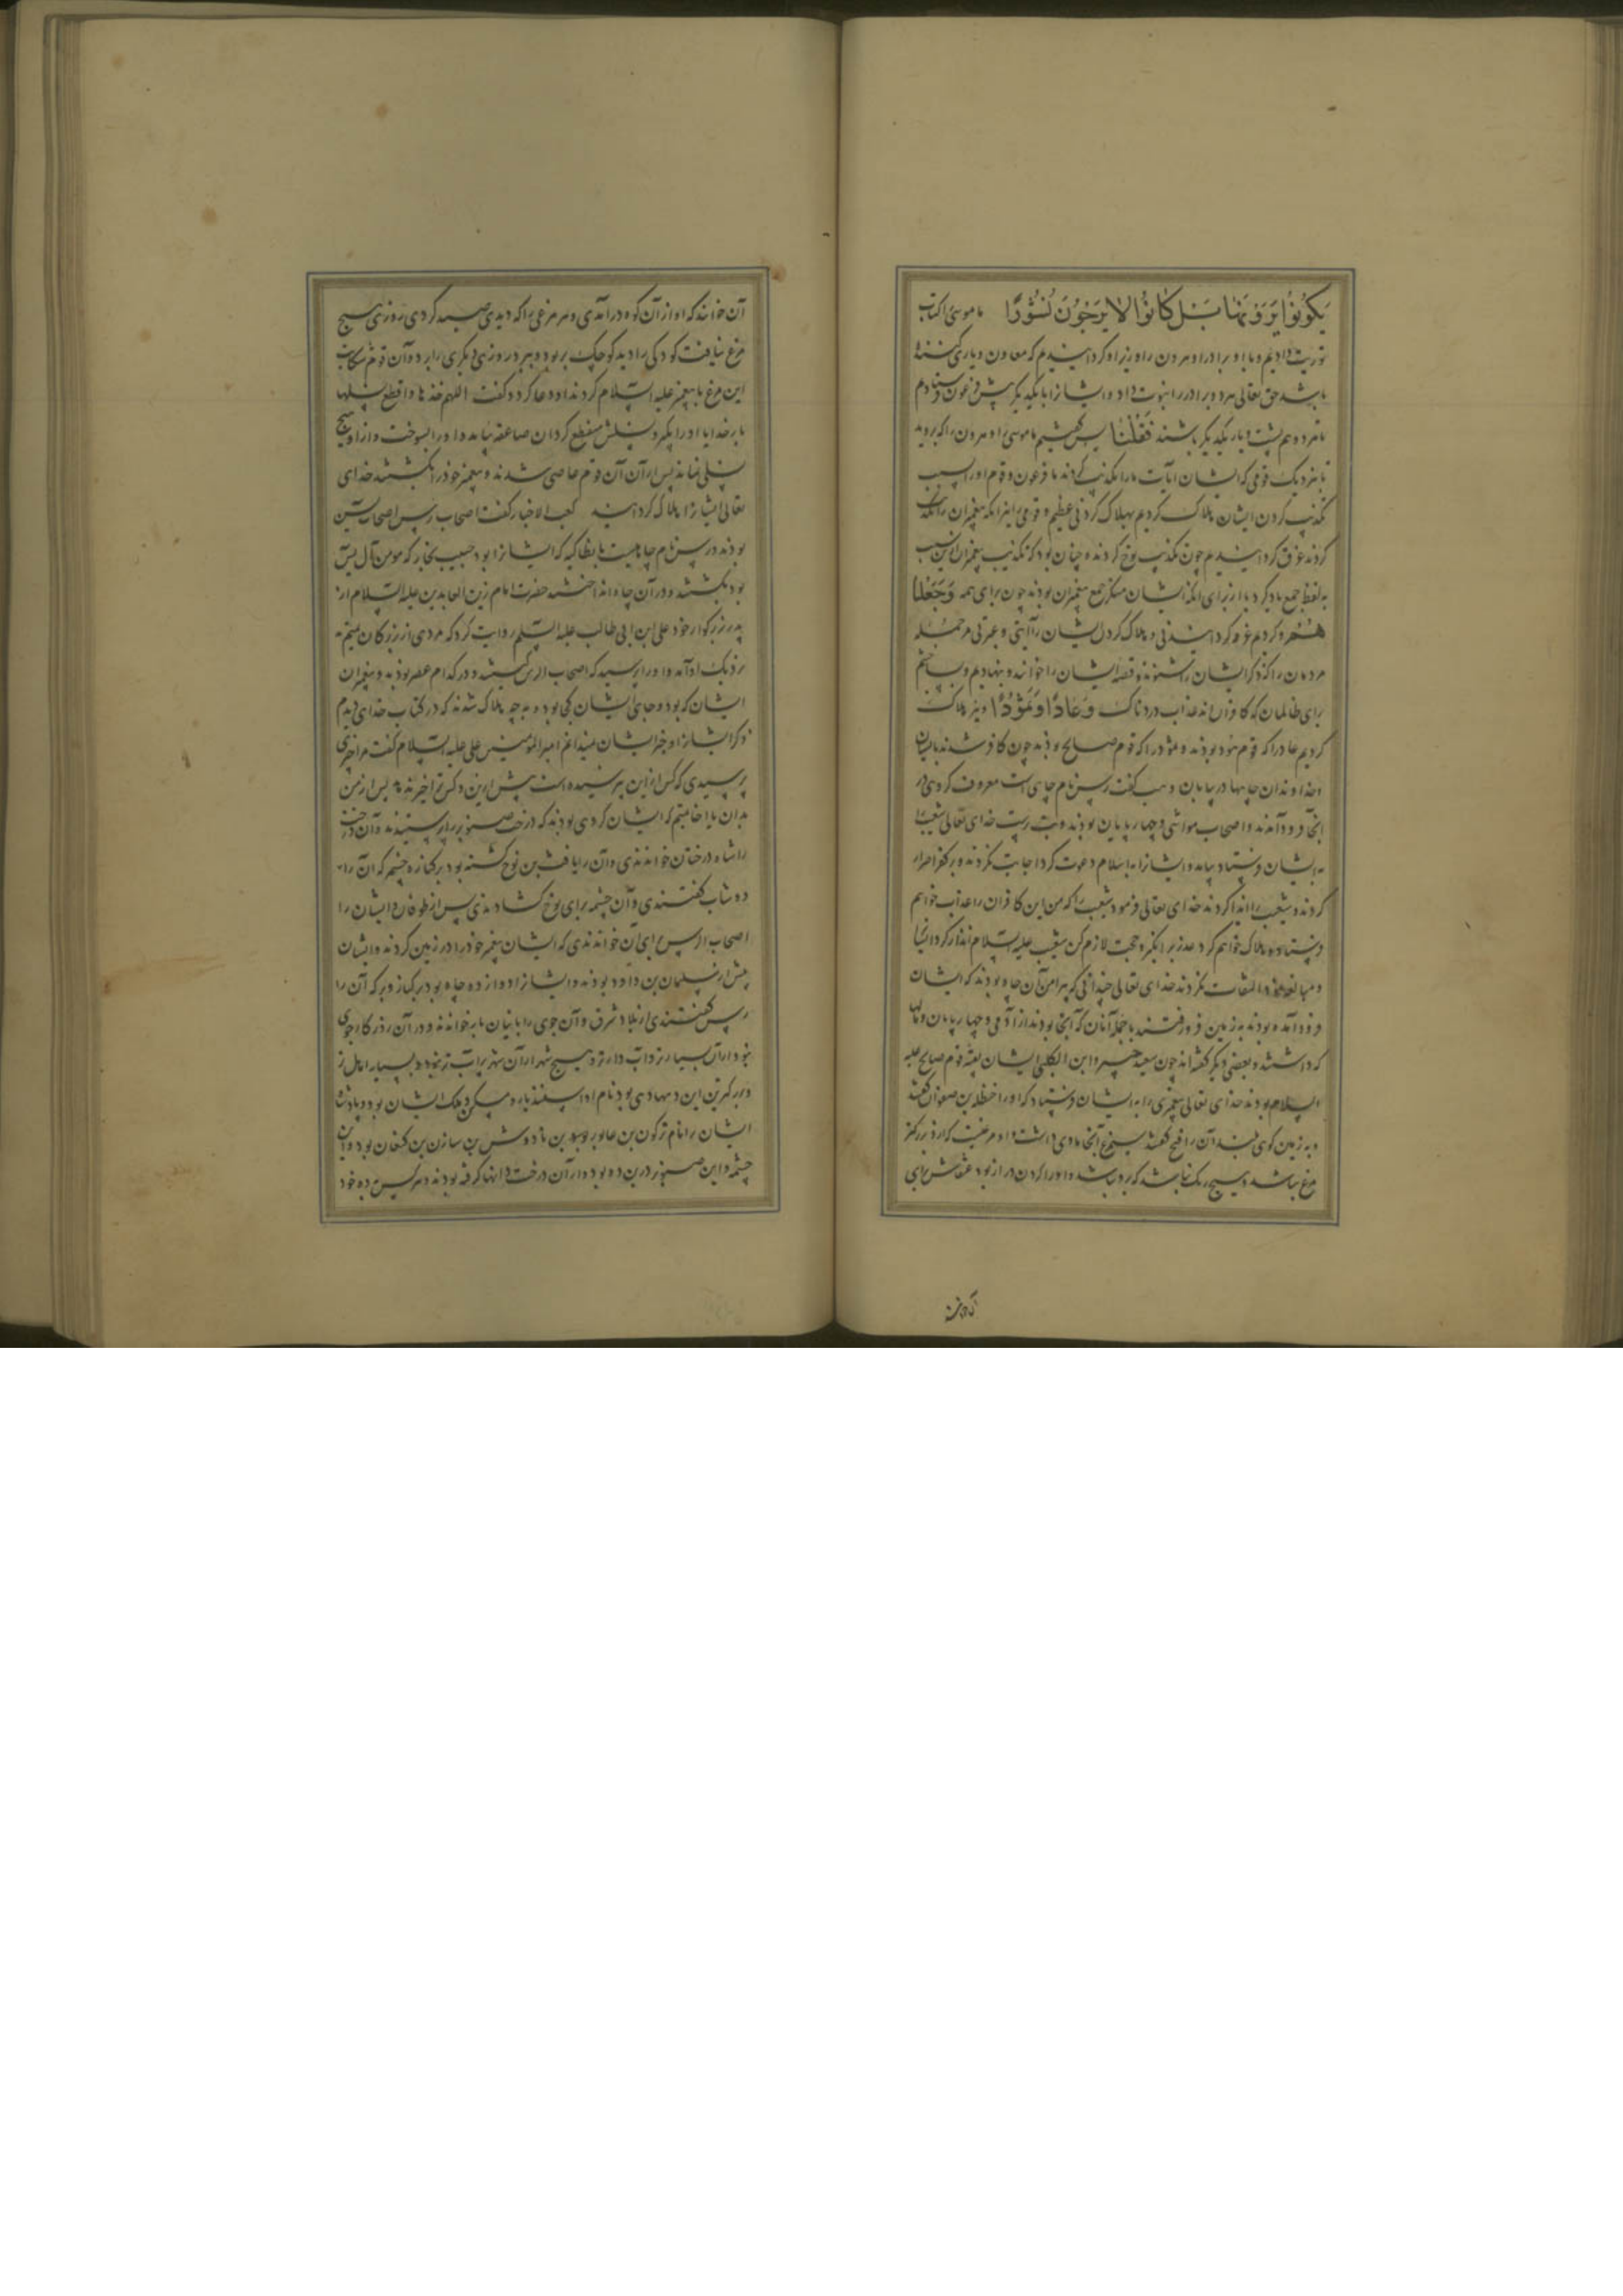 یَکُونُوا یَرَوْنَهَا بَلْ کَانُوا لَا یَرْجُونَ نُشُورًا ما موسی را کتاب
توریت دادیم و با او برادر او هرون را وزیر او گردانیدیم که معاون و یاری کننده
باشد حق تعالی هر دو برادر را نبوت داد و ایشانرا با یکدیگر پیش فرعون فرستادم
تا هر دو هم پشت و یار یکدیگر باشند فَقُلْنَا پس گفتیم ما موسی را و هرون را که بروید
تا بنزدیک قومی که ایشان آیات ما را تکذیب کردند ما فرعون و قوم او را بسبب
تکذیب کردن ایشان هلاک کردیم هلاک کردنی عظیم و قومی را نیز که پیغمبران را تکذیب
کردند غرق گردانیدیم چون تکذیب نوح کردند چنان بود که تکذیب پیغمبران ازین سبب
به لفظ جمع یاد کرد یا از برای آنکه ایشان منکر جمع پیغمبران بودند چون براهمه وَجَعَلْنَا
هُمْ و کردیم غرق گردانیدنی و هلاک کردن ایشان را آیتی و عبرتی مر جمله
مردمان را که ذکر ایشان بشنوند و قصه ایشان را خوانند و بنهادیم و بساختیم
برای ظالمان که کافران‌اند عذاب دردناک وَعَادًا وَثَمُودَا و نیز هلاک
کردیم عاد را که قوم هود بودند و ثمود را که قوم صالح بودند چون کافر شدند بایشان
خداوندان چاهها در بیابان وهب گفت رس نام چاهی است معروف گروهی در
آنجا فرود آمدند و اصحاب مواشی و چهارپایان بودند و بت پرست خدای تعالی شعیب را
به ایشان فرستاد بیامد و ایشانرا به اسلام دعوت کرد اجابت نکردند و بر کفر اصرار
کردند و شعیب را ایذا کردند خدای تعالی فرمود شعیب را که من این کافران را عذاب خواهم
فرستاد و هلاک خواهم کرد عذر برانگیز و حجت لازم کن شعیب علیه السلام انذار کرد ایشانرا
و مبالغه التفات نکردند خدای تعالی چندانی که پیرامن آن چاه بودند که ایشان
فرود آمده بودند به زمین فرو رفتند با جمله آنان که آنجا بودند از آدمی و چهارپایان و مالها
که داشتند و بعضی دیگر گفته‌اند چون سعید جبیر و ابن الکلبی ایشان بقیه قوم صالح علیه
السلام بودند خدای تعالی پیغمبری را به ایشان فرستاد که او را حنظلة بن صفوان گفتند
و به زمین کوهی بلند آن را فتح گفتند سیمرغ آنجا ماوی داشت و او مرغیست که از و بزرگتر
مرغ نباشد و هیچ رنگ نباشد که بر و نباشد و او را گردن دراز بود عنقاش برای
که او از
آن خوانند که او از آن کوه درآمدی و هر مرغی را که دیدی صید کردی روزی هیچ
مرغ نیافت کودکی را دید کوچک بربود و ببرد روزی دیگری را ببرد و آن قوم شکایت
این مرغ با پیغمبر علیه السلام کردند او دعا کرد و گفت اللهم خذها و اقطع نسلها
بارخدایا او را بگیر و نسلش منقطع گردان صاعقه بیامد و او را بسوخت و از او هیچ
نسلی نماند پس از آن آن قوم عاصی شدند و پیغمبر خود را بکشتند خدای
تعالی ایشانرا هلاک گردانید کعب الاخبار گفت اصحاب رس اصحاب یسین
بودند و رس نام چاهیست بانطاکیه که ایشانرا بود حبیب نجار که مومن آل یس
بود بکشتند و در آن چاه انداختند حضرت امام زین العابدین علیه السلام از
پدر بزرگوار خود علی ابن ابی طالب علیه السلم روایت کرد که مردی از بزرگان تمیم
نزدیک او آمد و او را پرسید که اصحاب الرس کیستند و در کدام عصر بودند و پیغمبران
ایشان که بود و جای ایشان کجا بود و به چه هلاک شدند که در کتاب خدای دیدم
ذکر ایشانرا و خبر ایشان نمیدانم امیرالمومنین علی علیه السلام گفت مرا خبری
پرسیدی که کس از این نپرسیده است پیش ازین و کس ترا خبر ندهد پس از من
بدان یا اخا تمیم که ایشان گروهی بودند که درخت صنوبر را پرستیدند و آن درخت
را شاه درختان خواندندی و آن را یافث بن نوح کشته بود بر کناره چشمه که آن را
دوشاب گفتندی و آن چشمه برای نوح گشادندی پس از طوفان و ایشان را
اصحاب الرس برای آن خواندندی که ایشان پیغمبر خود را در زمین کردند و ایشان
پیش از سلیمان بن داود بودند و ایشانرا دوازده چاه بود بر کناره رود که آن را
رس گفتندی از بلاد شرق و آن جوی را باینان باز خوانند و در آن روزگار جوی
نبود از آن بسیار تر و آب دارتر و هیچ شهر از آن شهر پرآب‌تر نبود و بسیار اهل‌تر
و بزرگترین این دیهها دیهی بود نام او اسفندیار و مسکن ملک ایشان بود و پادشاه
ایشان را نام ترکون بن عابور بن نادوش بن سازن بن کنعان بود و آن
چشمه و این صنوبر درین ده بود و از آن درخت دانها گرفته بودند و هر کس به ده خود